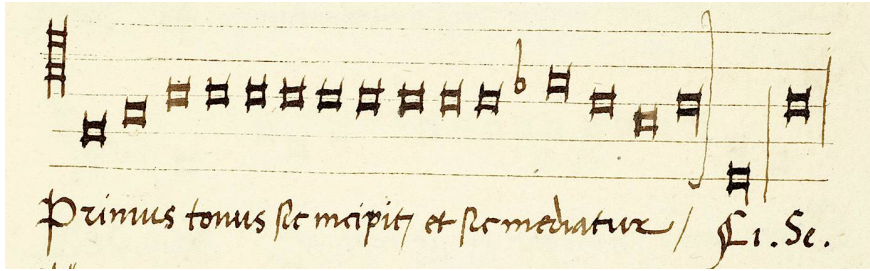 Primus tonus sic incipit, et sic mediatur / Fi. Se.